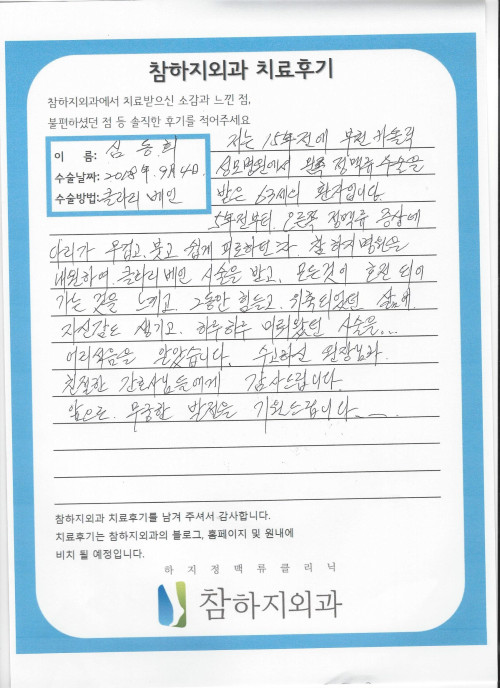 참하지외과 치료후기
참하지외과에서 치료받으신 소감과 느낀 점,
불편하셨던 점 등 솔직한 후기를 적어주세요
이 름: 심동희
수술날짜: 2018年. 9月 4日.
수술방법: 클라리 베인
저는 15年전에 부천 카톨릭
성모병원에서 왼쪽 정맥류 수술을
받은 63세의 환자입니다.
5年전부터. 오른쪽 정맥류 증상에
다리가 무겁고, 붓고 쉽게 피로하던 차. 참 하지병원을
내원하여. 클라리베인 시술을 받고. 모든것이 호전 되어
가는 것을 느끼고. 그동안 힘들고. 위축되었던 삶에.
자신감도 생기고. 하루하루 미뤄왔던 시술을...
어리석음을 알았습니다. 수고하신 원장님과.
친절한 간호사님들에게 감사드립니다.
앞으로. 무궁한 발전을 기원드립니다
참하지외과 치료후기를 남겨 주셔서 감사합니다.
치료후기는 참하지외과의 블로그, 홈페이지 및 원내에
비치 될 예정입니다.
하지정맥류클리닉
참하지외과